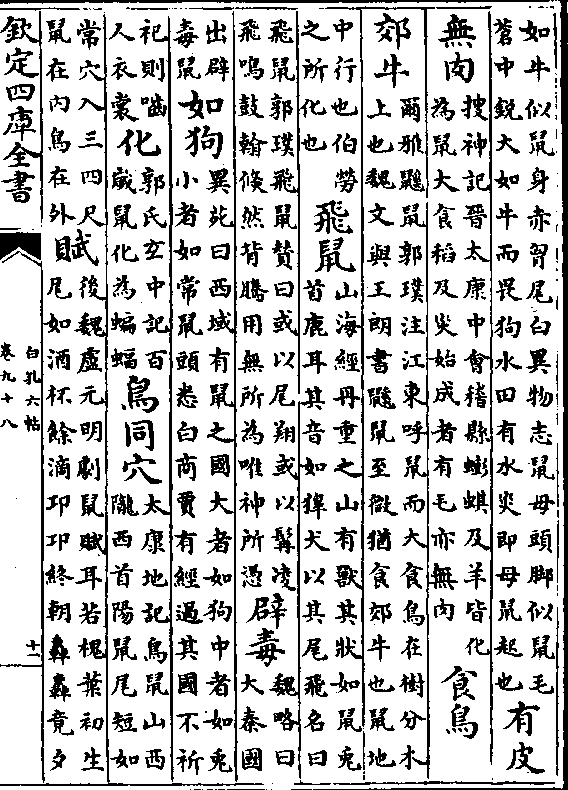 如牛似鼠身赤習尾白異物志鼠母頭脚似鼠毛
蒼中鋭大如牛而畏狗水田有水災即母鼠起也
有皮
無肉
搜神記晉太康中會稽縣蟛蜞及羊皆化
為鼠大食稻及災始成者有毛亦無肉
食鳥
郊牛
爾雅鼳鼠郭璞注江東呼鼠而大食鳥在樹分木
上也魏文與王朗書鼷鼠至微猶食郊牛也鼠地
中行也伯勞
之所化也
飛鼠
山海經丹重之山有獸其狀如鼠兎
首鹿耳其音如獋犬以其尾飛名曰
飛鼠郭璞飛鼠賛曰或以尾翔或以髯凌
飛鳴鼓翰倐然背騰用無所為唯神所憑
辟毒
魏略曰
大秦國
出辟
毒鼠
如狗
異苑曰西域有鼠之國大者如狗中者如兎
小者如常鼠頭悉白商賈有經過其國不祈
祀則嚙
人衣裳
化
郭氏玄中記百
歲鼠化為蝙蝠
鳥同穴
太康地記鳥鼠山西
隴西首陽鼠尾短如
常穴入三四尺
鼠在內鳥在外
賦
後魏盧元明劇鼠賦耳若槐葉初生
尾如酒杯餘滴卭卭終朝轟轟竟夕
欽定四庫全書
白孔六帖
卷九十八
十一